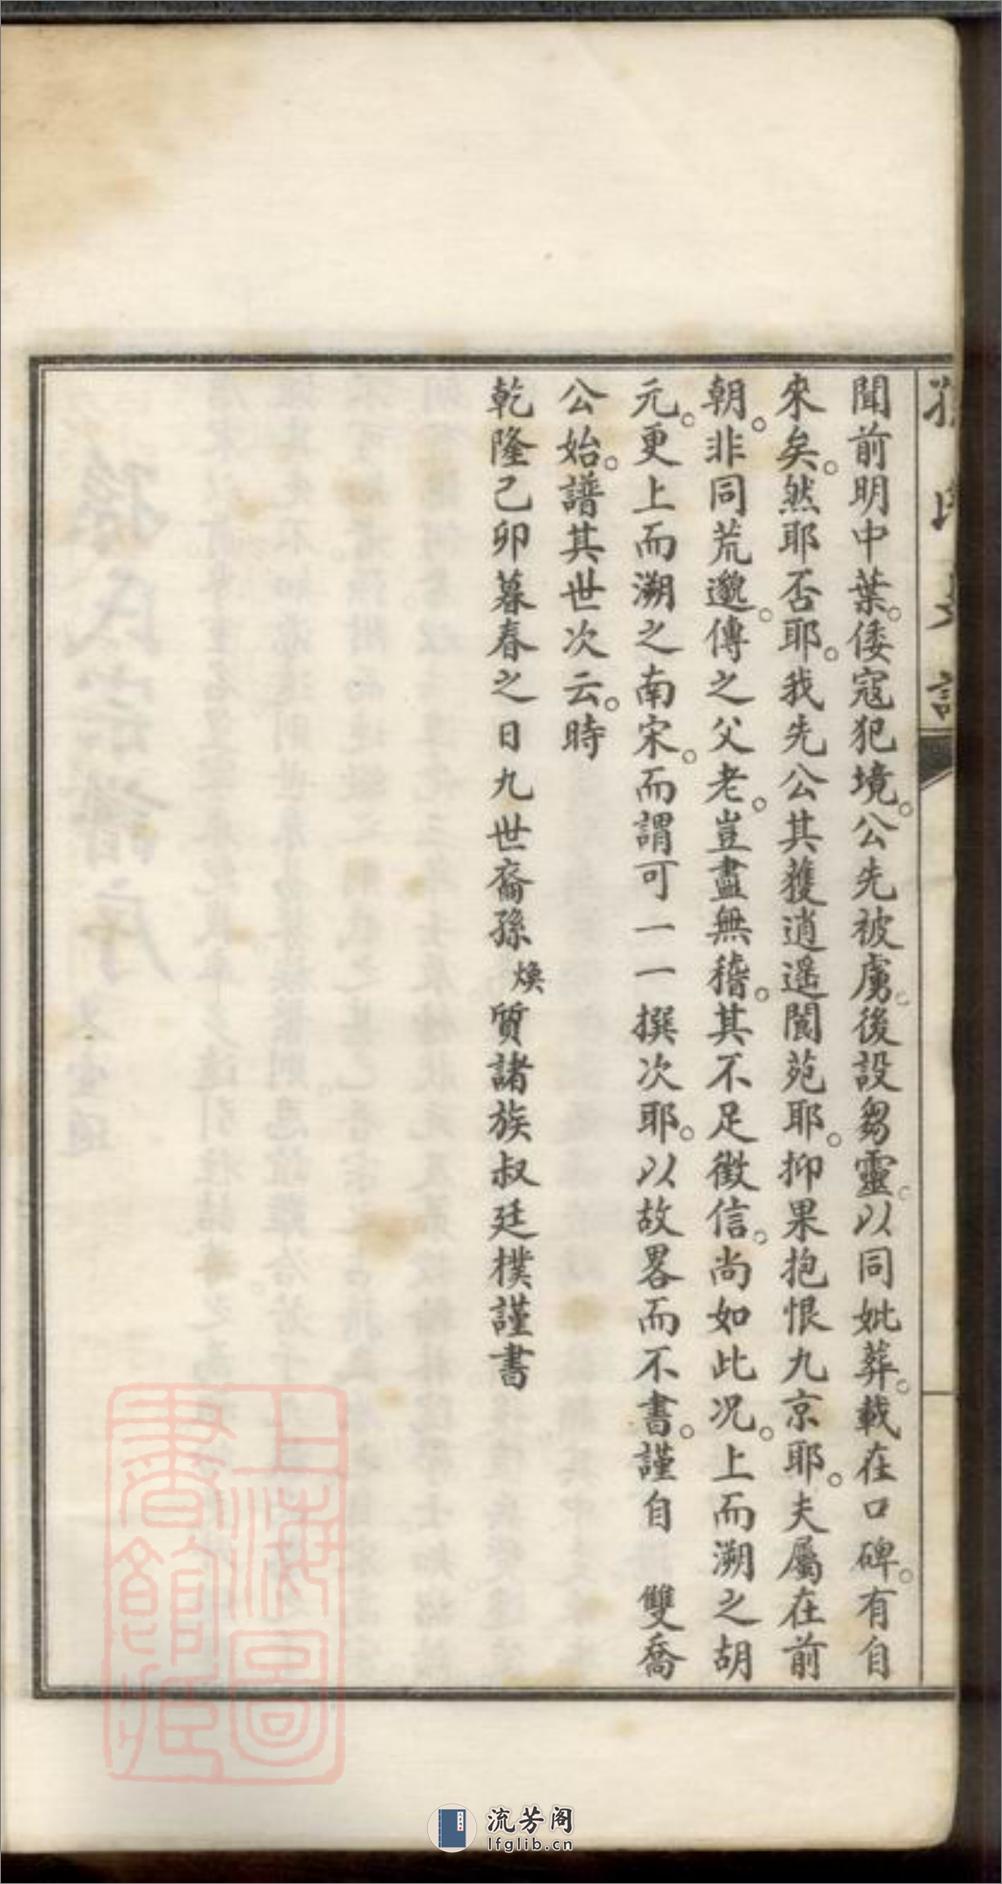 聞前明中葉。倭寇犯境。公先被虜。後設芻靈。以同妣葬。載在口碑。有自
來矣。然耶否耶。我先公其獲逍遥閬苑耶。抑果抱恨九京耶。夫屬在前
朝。非同荒邈。傳之父老。豈盡無稽。其不足徵信。尚如此况。上而溯之胡
元。更上而溯之南宋。而謂可一一撰次耶。以故畧而不書。謹自　雙喬
公始。譜其世次云。時
乾隆己卯暮春之日九世裔孫煥質諸族叔廷樸謹書
上海圖
書館藏
流芳阁
lfglib.cn